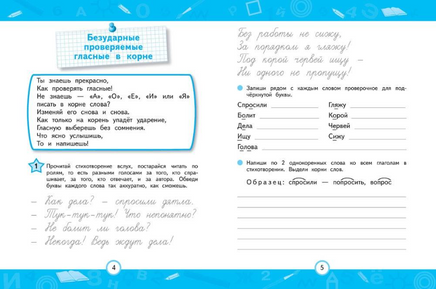 Безударные
проверяемые
гласные в корне
Ты знаешь прекрасно,
Как проверять гласные!
Не знаешь — «А», «О», «Е», «И» или «Я»
писать в корне слова?
Изменяй его снова и снова,
Как только на корень упадёт ударение,
Гласную выберешь без сомнения.
Что ясно услышишь,
То и напишешь!
1 Прочитай стихотворение вслух, постарайся читать по
ролям, то есть разными голосами за того, кто спра-
шивает, за того, кто отвечает, и за автора. Обведи
буквы каждого слова так аккуратно, как сможешь.
— Как дела? — спросили дятла.
— Тук-тук-тук! Что непонятно?
— Не болит ли голова?
— Некогда! Ведь ждут дела!
4
Без работы не сижу,
За порядком я гляжу!
Под корой червей ищу —
Ни одного не пропущу!
Запиши рядом с каждым словом проверочное для под-
чёркнутой буквы.
Спросили
Гляжу
Болит
Корой
Дела
Червей
Ищу
Сижу
Голова
Напиши по 2 однокоренных слова ко всем глаголам в
стихотворении. Выдели корни слов.
Образец: спросили — попросить, вопрос
5